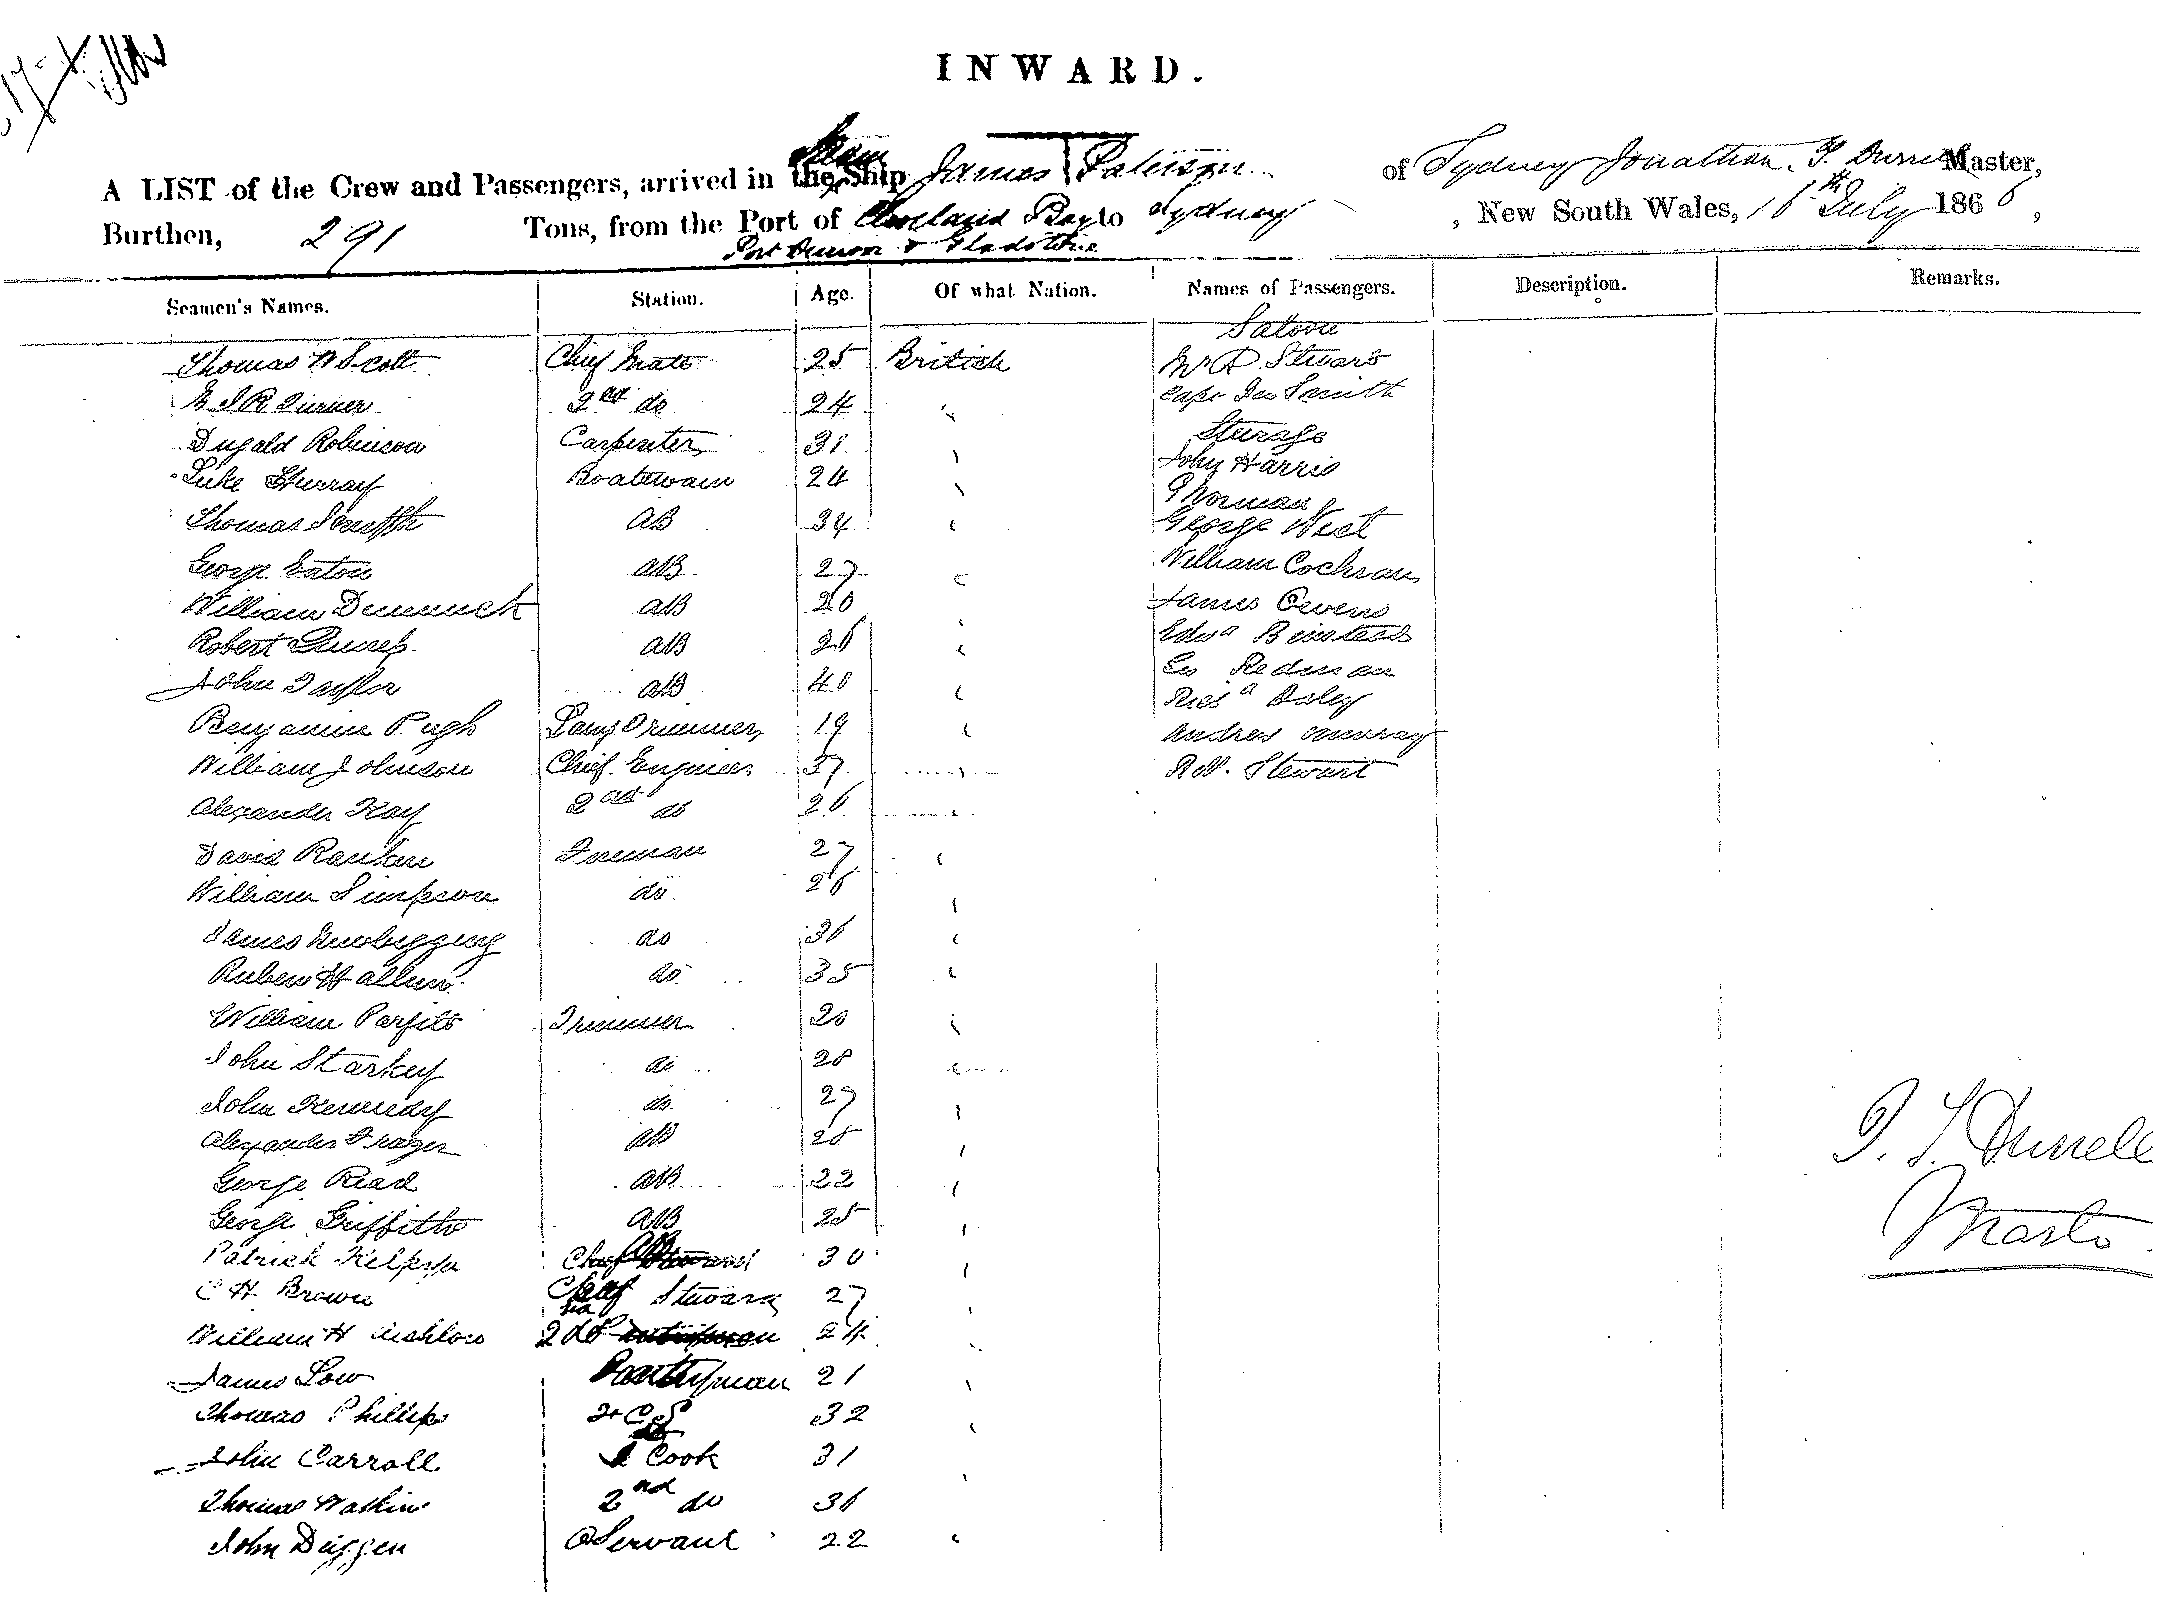 INWARD.
A LIST of the Crew and Passengers, arrived in the Ship James Paterson of Sydney Jonathan Master,
Burthen, 291 Tons, from the Port of Cleveland Bay to Sydney, New South Wales, July 186
Port Denison & Gladstone
Seamen's Names. Station. Age. Of what Nation. Names of Passengers. Description. Remarks.
Saloon
Thomas W Scott Chief Mate 25 British Mr Stewart
Turner 2nd do 24 Capt Smith
Dugald Robinson Carpenter 31 Sturage
Luke Murray Boatswain 24 John Harris
Thomas Smith AB 34 Norman
George West
George Eaton AB 27 William Cochran
William Dimmick AB 20 James Owens
Robert AB 26 Edwd Binstead
John Taylor AB 40 Redman
Benjamin Pugh Lamp Trimmer 19 Richd Daley
William Johnson Chief Engineer 37 Andrew Murray
Alexander Kay 2nd do 26 Stewart
David Rankin Fireman 27
William Simpson do 26
James Newbigging do 36
Ruben Hallum do 35
William Parfitt Trimmer 20
John Starkey do 28
John Kennedy do 27
Alexander Frazer AB 25
George Read AB 22
George Griffiths AB 25
Patrick AB 30
C H Brown Chief Steward 27
William H 2d 24
James Low Pantryman 21
Thomas Phillips 32
John Carroll Cook 31
Thomas Watkins 2nd do 36
John Duggen Servant 22
Durrell
Master